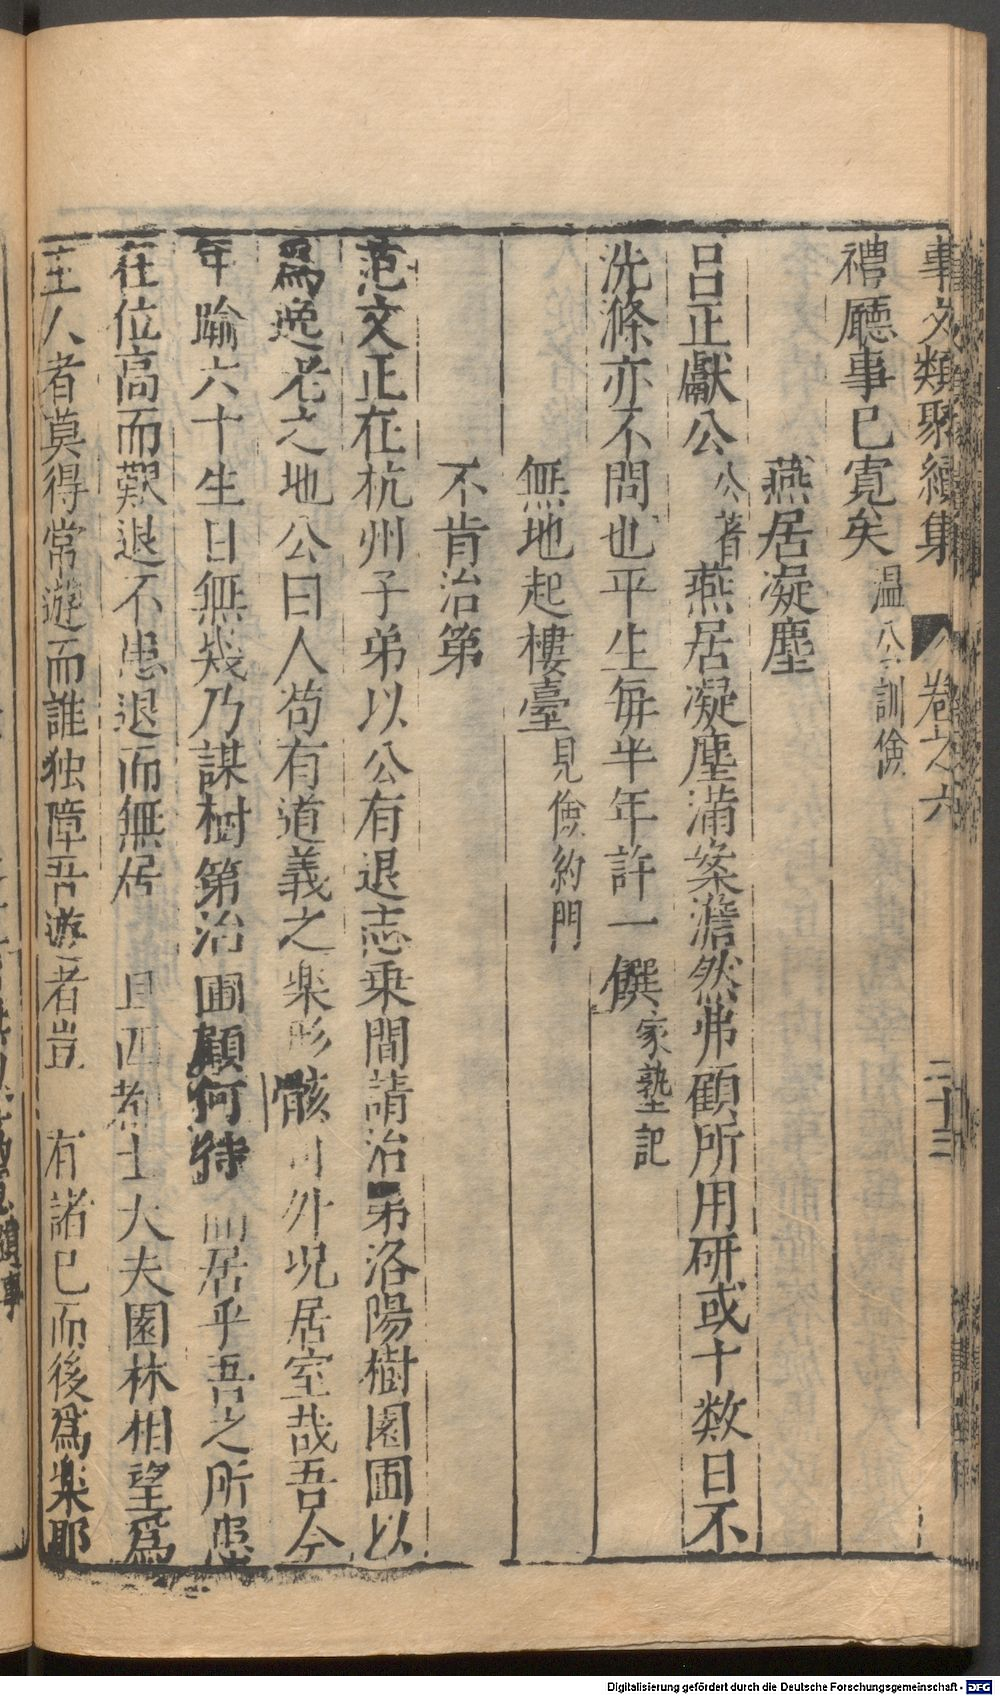 事文類聚續集 卷之六 二十三
禮廳事已寛矣 温公訓儉
燕居凝塵
吕正獻公 公著 燕居凝塵滿案澹然弗顧所用研或十数日不
洗滌亦不問也平生毎半年許一僎 家塾記
無地起樓臺 見儉約門
不肯治第
范文正在杭州子弟以公有退志乗間請治第洛陽樹園圃以
爲逸老之地公曰人苟有道義之楽形骸可外况居室哉吾今
年踰六十生日無幾乃謀樹第治圃顧何待而居乎吾之所患
在位高而艱退不患退而無居且西都士大夫園林相望爲
主人者莫得常遊而誰独障吾遊者豈有諸已而後爲楽耶
Digitalisierung gefördert durch die Deutsche Forschungsgemeinschaft - DFG